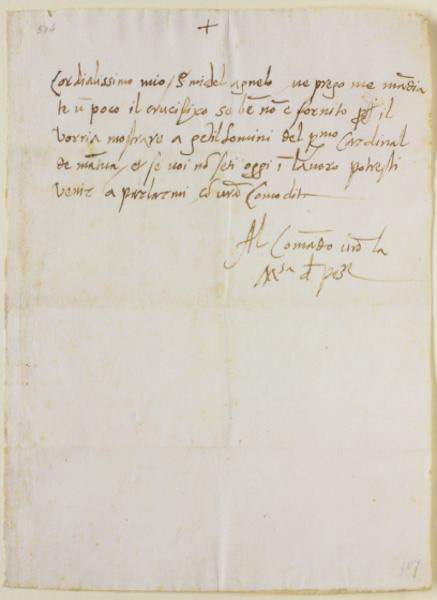 504
+
Cordialissimo mio S. michel agnelo ve prego me mādia
te ū poco il crucifixo se bē nō è fornito il
vorria mostrare a gētilhomini del R.mo Cardinal
de mātua, et se voi nō seti oggi ī lavoro potresti
venir a parlarmi cō vrā Comodità
Al Comādo vrō la
M.sa d pesc
107